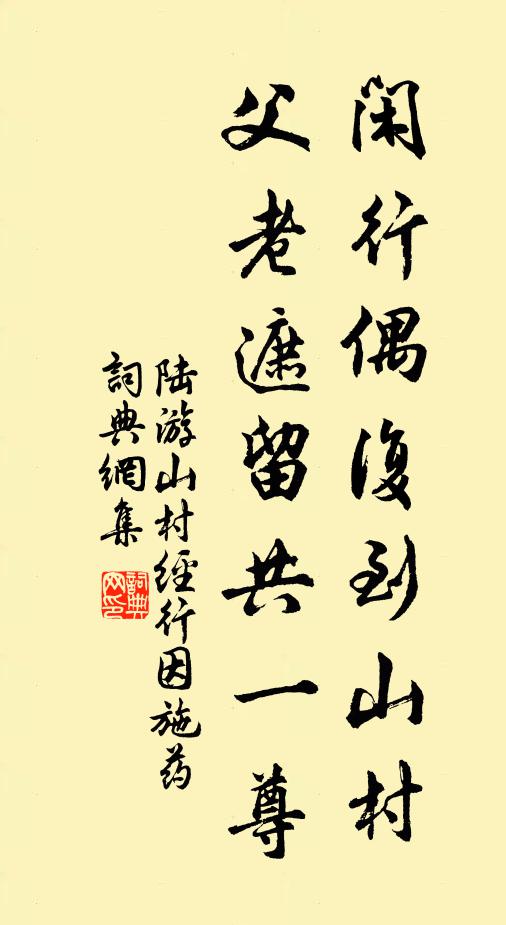 闲行偶復到山村
父老遮留共一尊
陆游山村經行因施药
詞典網集
詞典网印